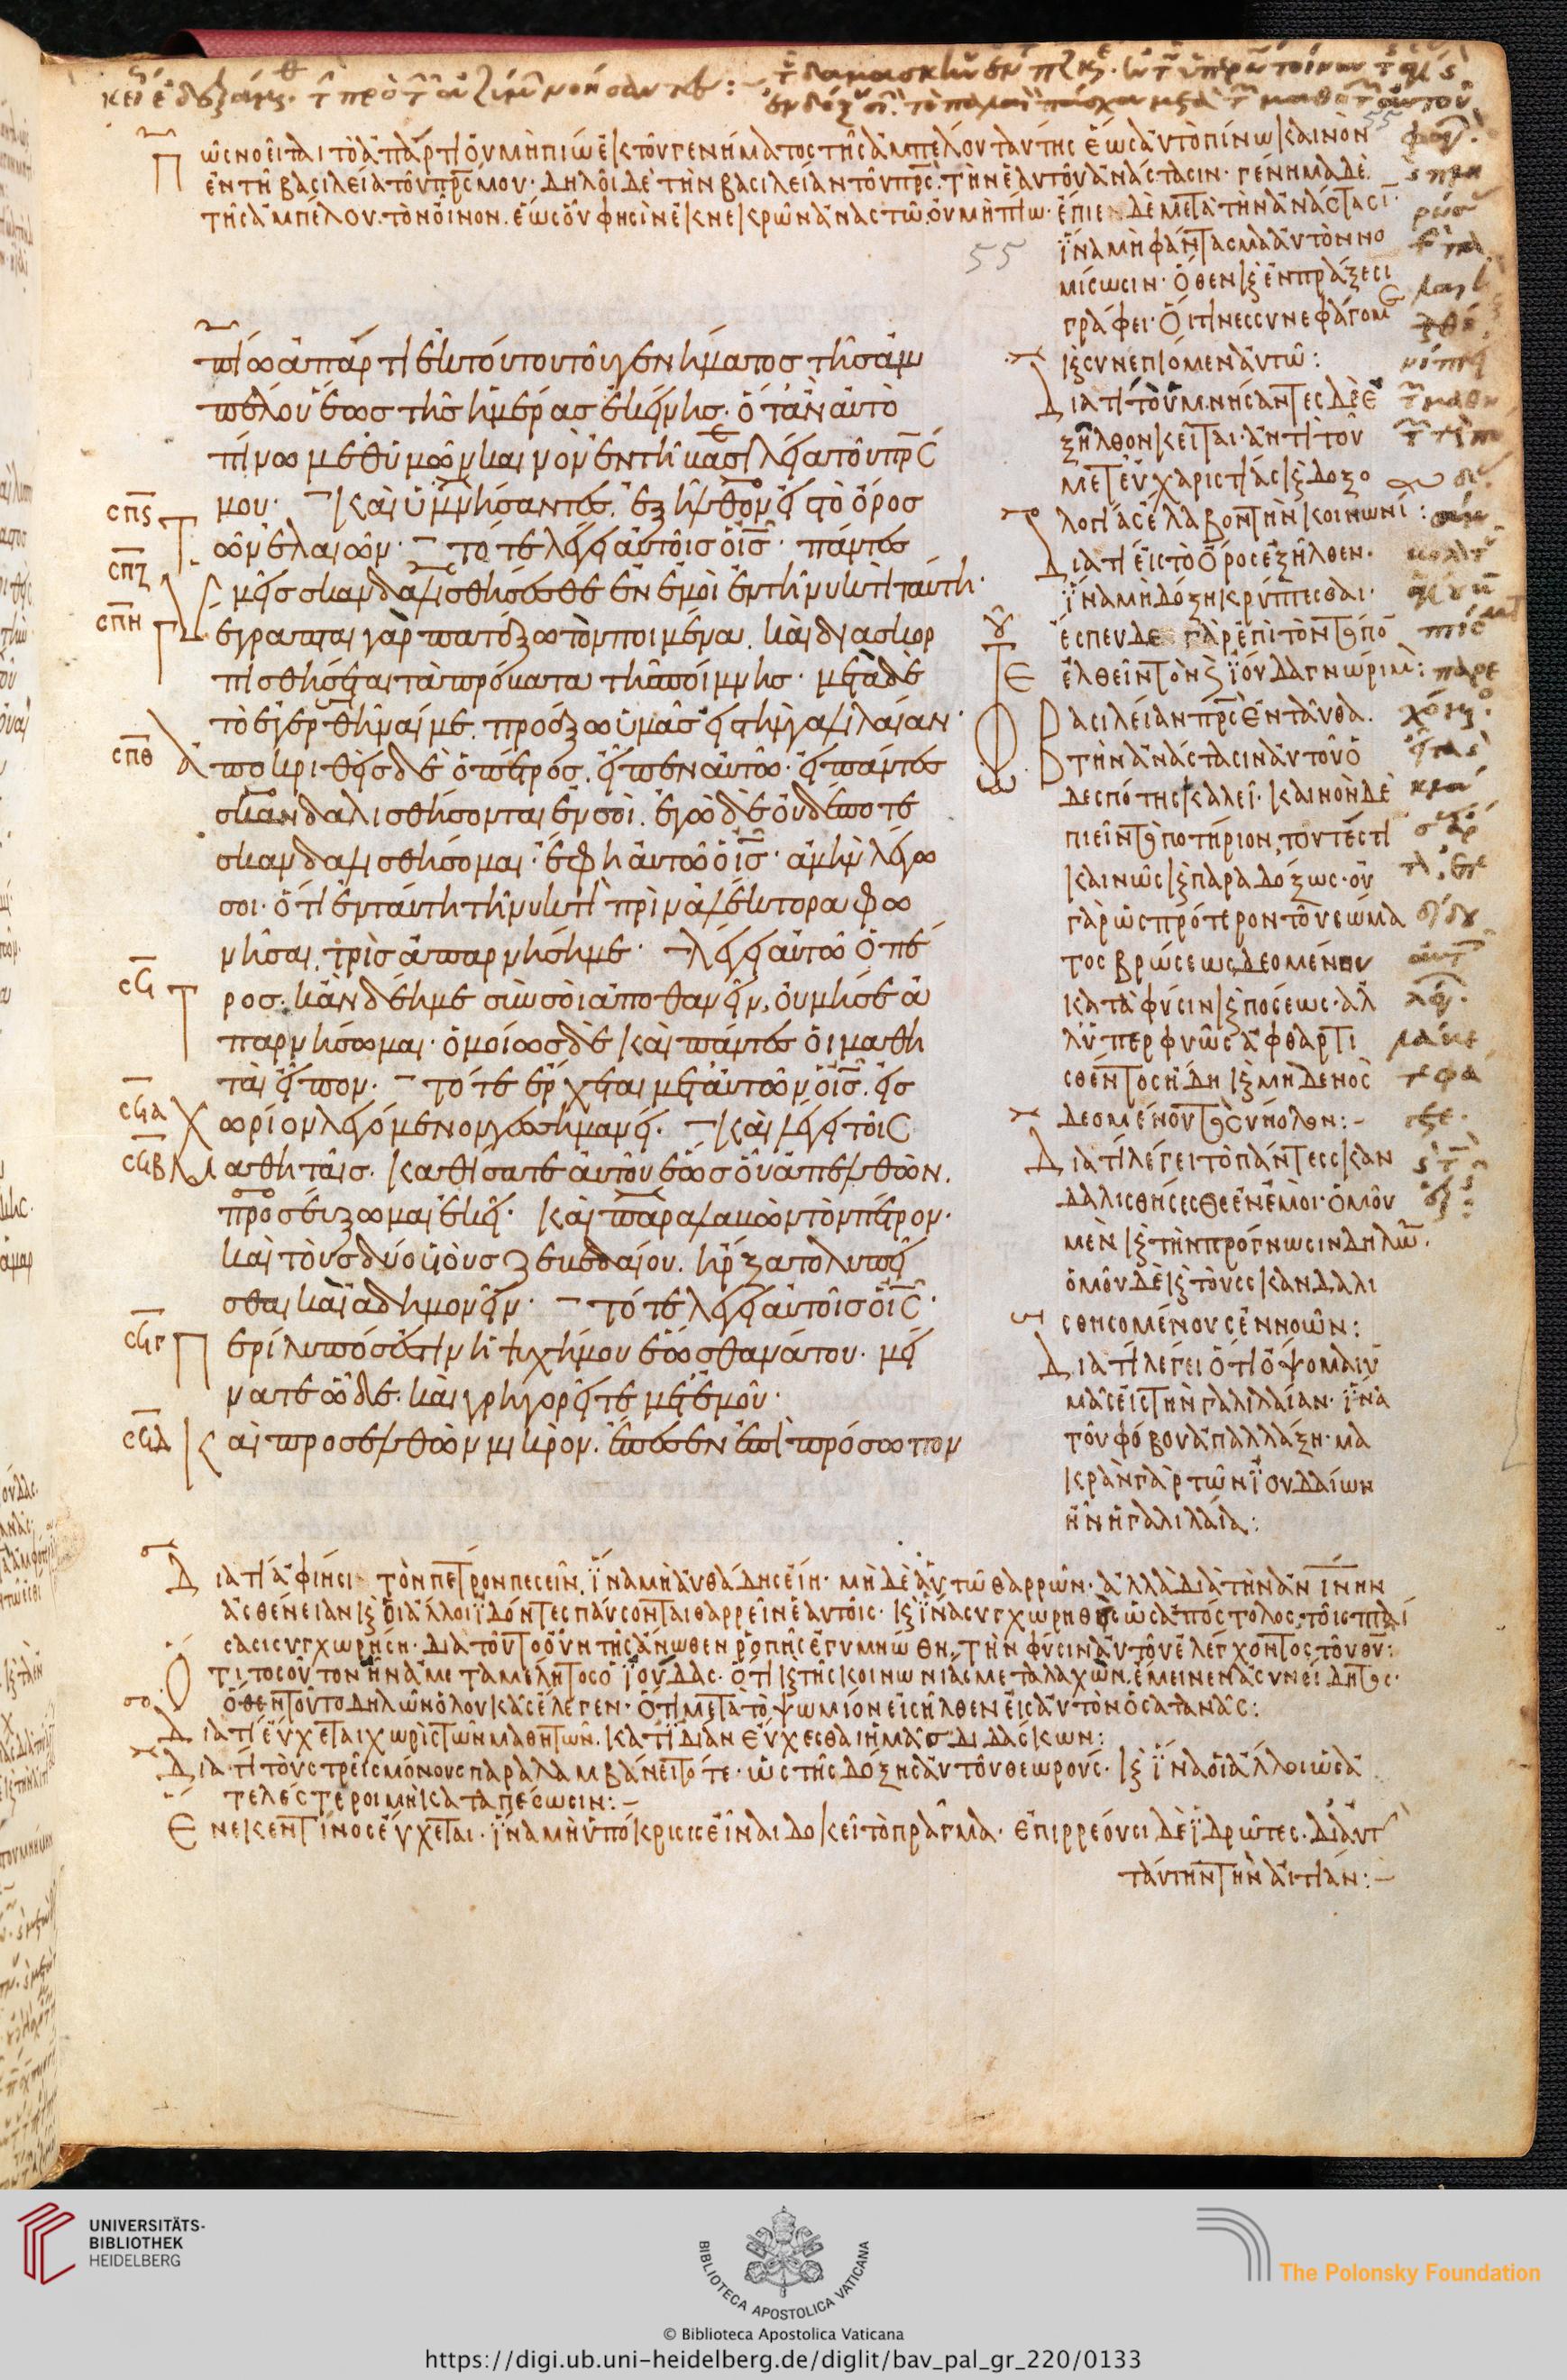 Πῶς νοεῖται τὸ ἀπάρτι οὐ μὴ πίω ἐκ τοῦ γενήματος τῆς ἀμπέλου ταύτης ἕως ἂν τὸ πίνω καινὸν
ἐν τῇ βασιλεία τοῦ πρς μου· δηλοῖ δὲ τὴν βασιλείαν τοῦ πρς. τὴν ἑαυτοῦ ἀνάστασιν· γένημα δὲ
τῆς ἀμπέλου. τὸν οἶνον. ἕως οὖν φησὶν ἐκ νεκρῶν ἀναστῶ. οὐ μὴ πίω· ἔπιε δὲ μετὰ τὴν ἀνάστασι·
55
ἵνα μὴ φάντασμα αὐτὸν νο
μίσωσιν· ὅθεν κ ἐν πράξεσι
γράφει· οἵτινες συνεφάγομ
κ συνεπίομεν αὐτῶ:
πίω ἀπάρτι ἐκ τούτου τοῦ γενήματος τῆς ἀμ
πέλου ἕως τῆς ἡμέρας ἐκείνης· ὅταν αὐτὸ
πίνω μεθ' ὑμῶν καινὸν ἐν τῆ βασιλεία τοῦ πρς
σπς μου· καὶ ὑμνήσαντες. ἐξῆλθον εἰς τὸ ὄρος
τῶν ἐλαιῶν· τότε λέγει αὐτοῖς ὁ ις· πάντες
σπζ ὑμεῖς σκανδαλισθήσεσθε ἐν ἐμοὶ ἐν τῆ νυκτὶ ταύτη·
σπη γέγραπται γὰρ πατάξω τὸν ποιμένα. καὶ διασκορ
πισθήσεται τὰ πρόβατα τῆς ποίμνης· μετὰ δὲ
τὸ ἐγερθῆναί με. προάξω ὑμᾶς εἰς τὴν γαλιλαίαν·
σπθ ἀποκριθεὶς δὲ ὁ πέτρος. εἶπεν αὐτῶ· εἰ πάντες
σκανδαλισθήσονται ἐν σοί. ἐγὼ δὲ οὐδέποτε
σκανδαλισθήσομαι· ἔφη αὐτῶ ὁ ις· ἀμὴν λέγω
σοι· ὅτι ἐν ταύτη τῆ νυκτὶ πρὶν ἀλέκτορα φω
νῆσαι. τρὶς ἀπαρνήση με· λέγει αὐτῶ ὁ πέ
σϟ τρος· κἂν δέη με σὺν σοὶ ἀποθανεῖν, οὐ μή σε ἀ
παρνήσωμαι· ὁμοίως δὲ καὶ πάντες οἱ μαθη
ταὶ εἶπον· τότε ἔρχεται μετ' αὐτῶν ὁ ις. εἰς
σϟα χωρίον λεγόμενον γεσθημανεῖ· καὶ λέγει τοῖς
σϟβ μαθηταῖς. καθίσατε αὐτοῦ ἕως οὗ ἀπελθὼν.
προσεύξωμαι ἐκεῖ· καὶ παραλαβὼν τὸν πέτρον·
καὶ τοὺς δύο υἱοὺς ζεβεδαίου. ἤρξατο λυπεῖ
σθαι καὶ ἀδημονεῖν· τότε λέγει αὐτοῖς ὁ ις·
σϟγ περίλυπός ἐστιν ἡ ψυχή μου ἕως θανάτου· μεί
νατε ὧδε. καὶ γρηγορεῖτε μετ' ἐμοῦ·
σϟδ καὶ προσελθὼν μικρὸν. ἔπεσεν ἐπὶ πρόσωπον
Διατί τὸ ὑμνήσαντες δὲ ἐ
ξῆλθον κεῖται· ἀντὶ τοῦ
μετ' εὐχαριστίας κ δοξο
λογίας ἔλαβον τὴν κοινωνί:
Διατί εἰς τὸ ὄρος ἐξῆλθεν·
ἵνα μὴ δόξη κρύπτεσθαι·
ἔσπευδε γὰρ ἐπὶ τὸν τόπο
ἐλθεῖν τὸν κ ἰούδα γνώριμ:
Βασιλείαν πρς ἐνταῦθα.
τὴν ἀνάστασιν αὐτοῦ ὁ
δεσπότης καλεῖ· καινὸν δὲ
πιεῖν τὸ ποτήριον, τουτέστι
καινῶς κ παραδόξως· οὐ
γὰρ ὡς πρότερον τοῦ σώμα
τος βρώσεως δεομένου
κατὰ φύσιν κ πόσεως· ἀλ
λ' ὑπερφυῶς ἀφθαρτι
σθέντος ἤδη κ μηδενὸς
δεομένου τὸ σύνολον:-
Διατί λέγει τὸ πάντες σκαν
δαλισθήσεσθε ἐν ἐμοί· ὁμοῦ
μὲν κ τὴν πρόγνωσιν δηλῶ.
ὁμοῦ δὲ κ τοὺς σκανδαλι
σθησομένους ἐννοῶν:
Διατί λέγει ὅτι ὄψομαι ὑ
μᾶς εἰς τὴν γαλιλαίαν· ἵνα
τοῦ φόβου ἀπαλλάξη· μα
κρὰν γὰρ τῶν ἰουδαίων
ἦν ἡ γαλιλαία:
Διατί ἀφίησι τὸν πέτρον πεσεῖν. ἵνα μὴ αὐθάδης εἴη· μηδὲ αὐτῶ θαρρῶν· ἀλλὰ διὰ τὴν ἀνίνην
ἀσθένειαν κ οἱ ἄλλοι ἰδόντες παύσονται θαρρεῖν ἑαυτοῖς· κ ἵνα συγχωρηθεὶς ὡς ἀπόστολος, τοῖς πταί
σασι συγχωρήση· διὰ τοῦτο οὖν τῆς ἄνωθεν ῥοπῆς ἐγυμνώθη, τὴν φύσιν αὐτοῦ ἐλέγχοντος τοῦ θυ:
Ὅτι τοσοῦτον ἦν ἀμεταμέλητος ὁ ἰούδας. ὅτι κ τῆς κοινωνίας μεταλαχὼν. ἔμεινεν ἀσυνείδητος·
ὅθεν τοῦτο δηλῶν ὁ λουκᾶς ἔλεγεν· ὅτι μετὰ τὸ ψωμίον εἰσῆλθεν εἰς αὐτὸν ὁ σατανᾶς:
Διατί εὔχεται χωρὶς τῶν μαθητῶν. κατ' ἰδίαν εὔχεσθαι ἡμᾶς διδάσκων:
Διατί τοὺς τρεῖς μόνους παραλαμβάνει τότε· ὡς τῆς δόξης αὐτοῦ θεωρούς· κ ἵνα οἱ ἄλλοι ὡς ἀ
τελέστεροι μὴ καταπέσωσιν:-
Ἕνεκεν τίνος εὔχεται· ἵνα μὴ ὑπόκρισις εἶναι δοκεῖ τὸ πρᾶγμα· ἐπιρρέουσι δὲ ἱδρῶτες· δι' αὐτ
ταύτην τὴν αἰτίαν:-
UNIVERSITÄTS-
BIBLIOTHEK
HEIDELBERG
BIBLIOTECA APOSTOLICA VATICANA
The Polonsky Foundation
© Biblioteca Apostolica Vaticana
https://digi.ub.uni-heidelberg.de/diglit/bav_pal_gr_220/0133